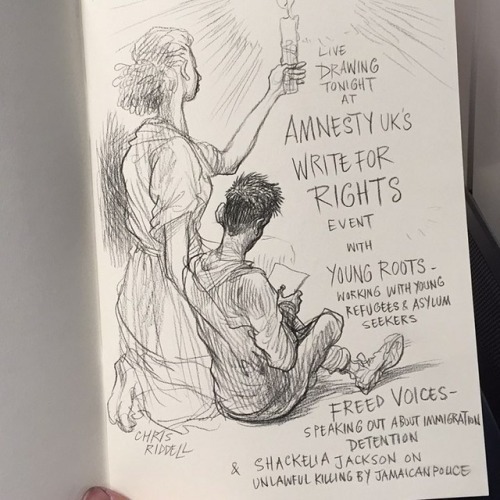 LIVE
DRAWING
TONIGHT
AT
AMNESTY UK'S
WRITE FOR
RIGHTS
EVENT
WITH
YOUNG ROOTS -
WORKING WITH YOUNG
REFUGEES & ASYLUM
SEEKERS
FREED VOICES -
SPEAKING OUT ABOUT IMMIGRATION
DETENTION
& SHACKELIA JACKSON ON
UNLAWFUL KILLING BY JAMAICAN POLICE
CHRIS
RIDDELL